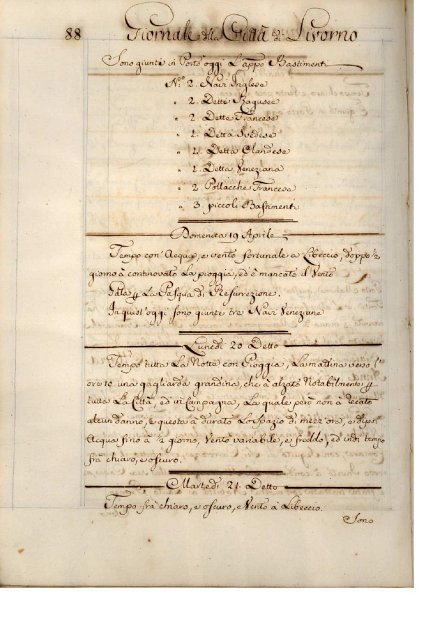 88 Giornale della Città di Livorno
Sono giunti in Porto oggi L'app.i Bastimenti
N.o 2. Navi Inglese
" 2. Dette Ragusee
" 2. Dette Francese
" 1. Detta Svedese
" 1. Detta Olandese
" 1. Detta Veneziana
" 2. Pollacche Francese
" 3. piccoli Bastimenti
Domenica 19 Aprile
Tempo con Acqua, e vento fortunale a Libeccio, doppo ½
giorno à continovato La pioggia, ed è mancato il Vento
La Pasqua di Resurrezione.
In quest'oggi sono giunte tre Navi Veneziane
Lunedì 20 Detto
Tempo tutta La Notte con Pioggia, La mattina verso
ore 10. una gagliarda grandina, che à alzato Notabilmente p
tutta La Città, ed in Campagna, La quale però non à recato
alcun danno, e questa à durato Lo spazio di mezz'ora, e dipoi
Acqua fino à ½ giorno, Vento variabile, e freddo, ed indi tempo
frà chiaro, e oscuro.
Martedì 21. Detto
Tempo frà chiaro, e oscuro, e Vento à Libeccio.
Sono